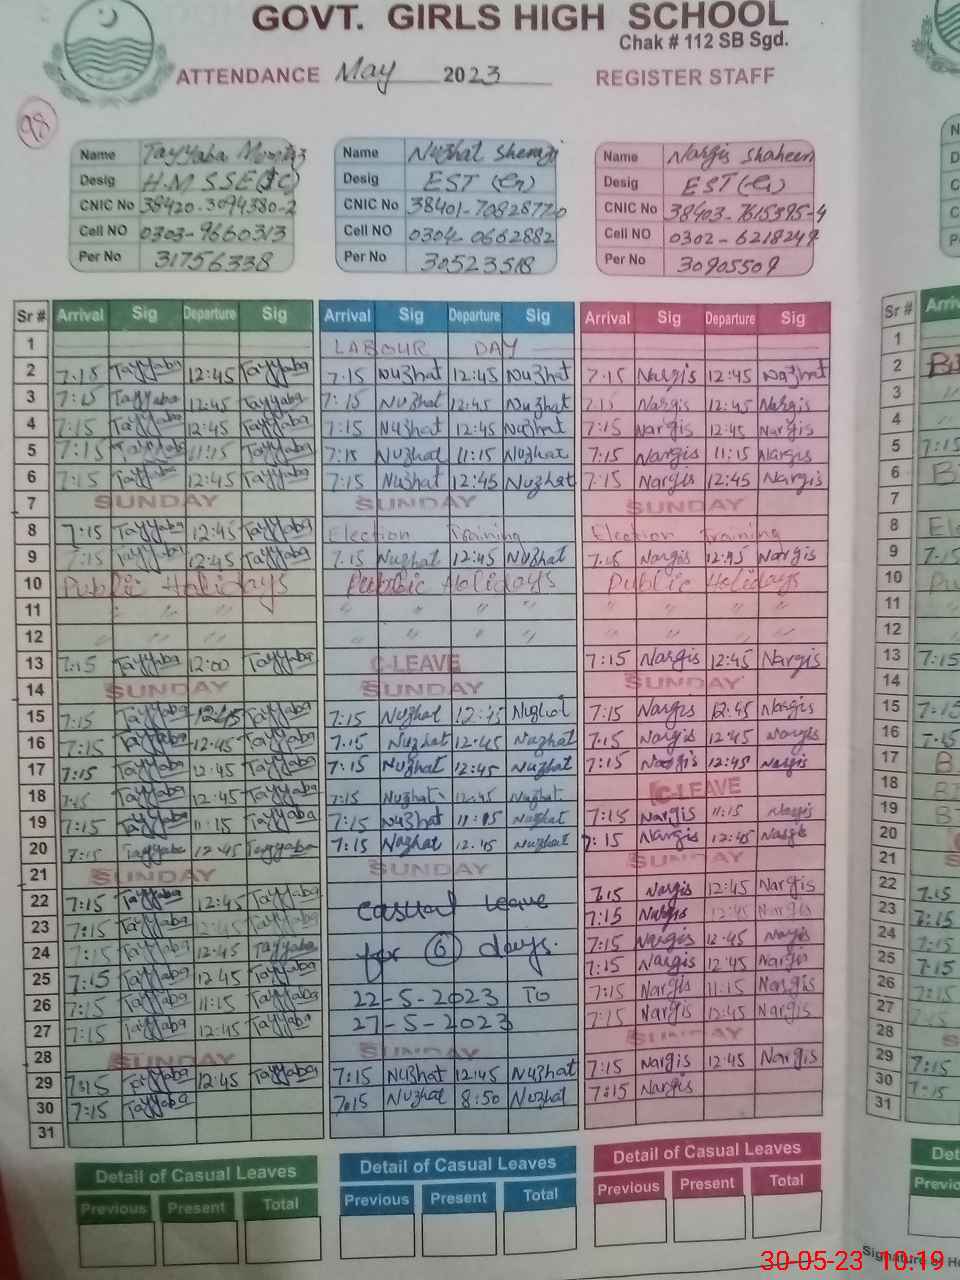 GOVT. GIRLS HIGH SCHOOL
Chak # 112 SB Sgd.
ATTENDANCE May 2023 REGISTER STAFF
98
Name Tayyaba Mumtaz Name Nuzhat Sherazi Name Nargis Shaheen
Desig H.M SSE(SC) Desig EST (En) Desig EST (En)
CNIC No 38420-3094380-2 CNIC No 38401-7092877-0 CNIC No 38403-7615395-4
Cell NO 0303-9660313 Cell NO 0304-0662882 Cell NO 0302-6218249
Per No 31756338 Per No 30523518 Per No 30905509
Sr # Arrival Sig Departure Sig Arrival Sig Departure Sig Arrival Sig Departure Sig Sr # Arriv
1 LABOUR DAY 1
2 7:15 Tayyaba 12:45 Tayyaba 7:15 Nuzhat 12:45 Nuzhat 7:15 Nargis 12:45 Nargis 2
3 7:15 Tayyaba 12:45 Tayyaba 7:15 Nuzhat 12:45 Nuzhat 7:15 Nargis 12:45 Nargis 3
4 7:15 Tayyaba 12:45 Tayyaba 7:15 Nuzhat 12:45 Nuzhat 7:15 Nargis 12:45 Nargis 4
5 7:15 Tayyaba 11:15 Tayyaba 7:15 Nuzhat 11:15 Nuzhat 7:15 Nargis 11:15 Nargis 5 7:15
6 7:15 Tayyaba 12:45 Tayyaba 7:15 Nuzhat 12:45 Nuzhat 7:15 Nargis 12:45 Nargis 6
7 SUNDAY SUNDAY SUNDAY 7
8 7:15 Tayyaba 12:45 Tayyaba Election Training Election Training 8
9 7:15 Tayyaba 12:45 Tayyaba 7:15 Nuzhat 12:45 Nuzhat 7:15 Nargis 12:45 Nargis 9 7:15
10 Public Holidays Public Holidays Public Holidays 10
11 " " " " " " " " " " 11
12 " " " " " " " " " " 12
13 7:15 Tayyaba 12:00 Tayyaba C-LEAVE 7:15 Nargis 12:45 Nargis 13 7:15
14 SUNDAY SUNDAY SUNDAY 14
15 7:15 Tayyaba 12:45 Tayyaba 7:15 Nuzhat 12:45 Nuzhat 7:15 Nargis 12:45 Nargis 15 7:15
16 7:15 Tayyaba 12:45 Tayyaba 7:15 Nuzhat 12:45 Nuzhat 7:15 Nargis 12:45 Nargis 16 7:15
17 7:15 Tayyaba 12:45 Tayyaba 7:15 Nuzhat 12:45 Nuzhat 7:15 Nargis 12:45 Nargis 17
18 7:15 Tayyaba 12:45 Tayyaba 7:15 Nuzhat 12:45 Nuzhat C-LEAVE 18
19 7:15 Tayyaba 11:15 Tayyaba 7:15 Nuzhat 11:15 Nuzhat 7:15 Nargis 11:15 Nargis 19
20 7:15 Tayyaba 12:45 Tayyaba 7:15 Nuzhat 12:45 Nuzhat 7:15 Nargis 12:45 Nargis 20
21 SUNDAY SUNDAY SUNDAY 21
22 7:15 Tayyaba 12:45 Tayyaba casual leave 7:15 Nargis 12:45 Nargis 22 7:15
23 7:15 Tayyaba 12:45 Tayyaba 7:15 Nargis 12:45 Nargis 23 7:15
24 7:15 Tayyaba 12:45 Tayyaba for 6 days. 7:15 Nargis 12:45 Nargis 24 7:15
25 7:15 Tayyaba 12:45 Tayyaba 7:15 Nargis 12:45 Nargis 25 7:15
26 7:15 Tayyaba 11:15 Tayyaba 22-5-2023 To 7:15 Nargis 11:15 Nargis 26 7:15
27 7:15 Tayyaba 12:45 Tayyaba 27-5-2023 7:15 Nargis 12:45 Nargis 27
28 SUNDAY SUNDAY SUNDAY 28
29 7:15 Tayyaba 12:45 Tayyaba 7:15 Nuzhat 12:45 Nuzhat 7:15 Nargis 12:45 Nargis 29 7:15
30 7:15 Tayyaba 7:15 Nuzhat 8:50 Nuzhat 7:15 Nargis 30 7:15
31 31
Detail of Casual Leaves Detail of Casual Leaves Detail of Casual Leaves Det
Previous Present Total Previous Present Total Previous Present Total Previo
Signature of He
30-05-23 10:19